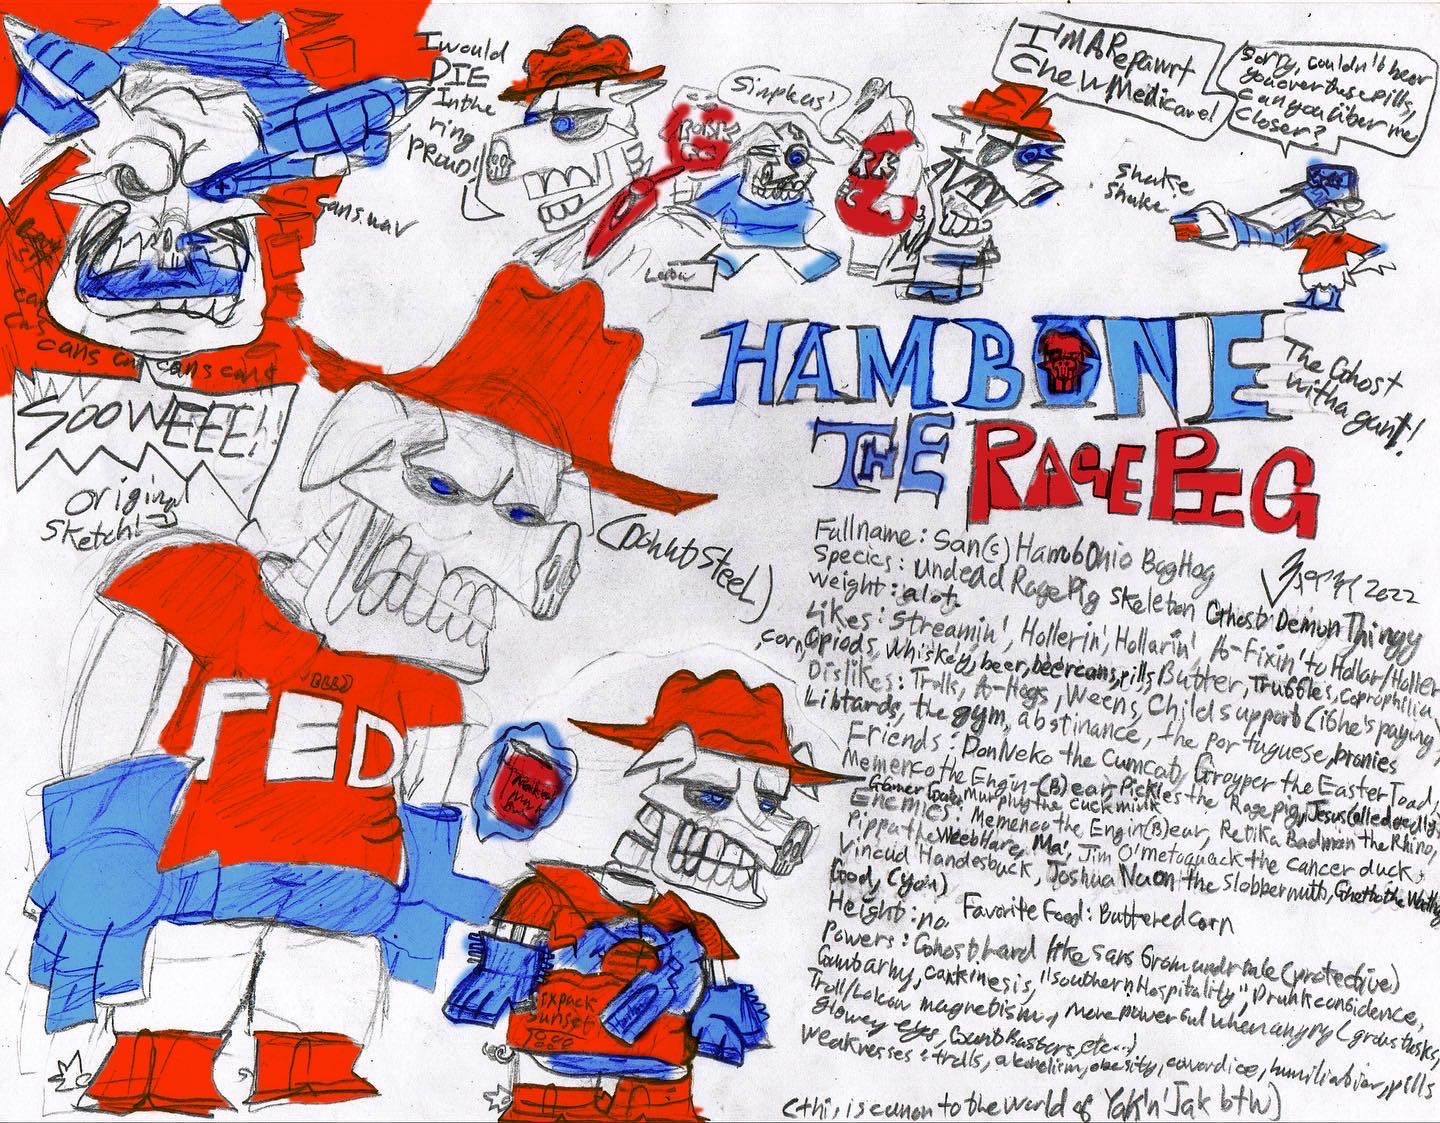 I would
DIE
In the
ring
PROUD!
Simpkus!
I'M A Repawrt
Chew Medicare!
Sorry, couldn't hear
you over these pills,
can you liber me
closer?
shake
shake
sans.wav
cans cans cans
SOOWEEE!!
original
sketch!
(Donut Steel)
HAMBONE
THE RAGE PIG
The Ghost
with a gun!
2022
Fullname: San(s) HambOnio BogHog
Species: Undead Rage Pig Skeleton Ghost Demon Thingy
weight: a lot.
Likes: Streamin', Hollerin', Hollarin', fo-Fixin' to Hollar/Holler
, corn, Opiods, whiskey, beer, beercans, pills, Butter, Truffles, coprophilia,
Dislikes: Trolls, fo-Hogs, Weens, Child support (if he's paying,
Libtards, the gym, abstinance, the portuguese, bronies
Friends: Don Neko the Cumcat, Groyper the Easter Toad,
Memenco the Engin-(B)ear, Pickles the Rage pig, Jesus (allegedly)
Gamer Gator, Murphy the cuck mink
Enemies: Memenco the Engin(B)ear, Retika Badman the Rhino,
Pippa the Weeb Hare, Ma', Jim O'metoquack the cancer duck,
Vincud Handesbuck, Joshua Nuon the Slobbermutt,
God, (You)
Height: no. Favorite Food: Buttered corn
Powers: Ghost, hard like sans from undrtale (protective)
Gunt army, cankinesis, "Southern Hospitality", Drunk confidence,
Troll/Lolcow magnetism, more powerful when angry (grows tusks,
glowey eyes, Gunt Busters, etc...)
weaknesses: trolls, alcoholism, obesity, cowardice, humiliation, pills
(this is canon to the world of Yak'n'Jak btw)
FED
sixpack
sunset